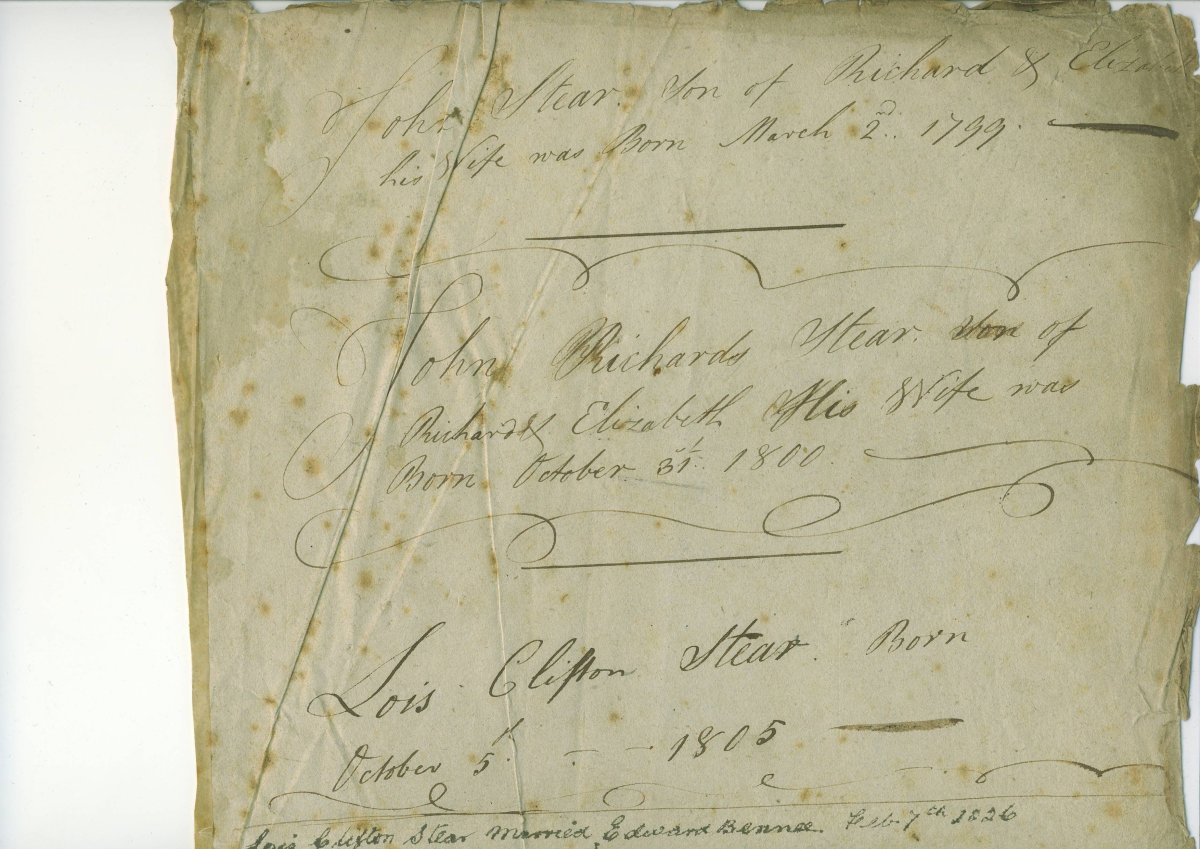 John Stear. Son of Richard & Elizabeth
his Wife was Born March 2nd. 1799.
John Richards Stear. Son of
Richard & Elizabeth His Wife was
Born October 31st. 1800
Lois Clifton Stear. Born
October 5th. - - 1805
Lois Clifton Stear Married Edward Bennee. Feb. 7th 1826